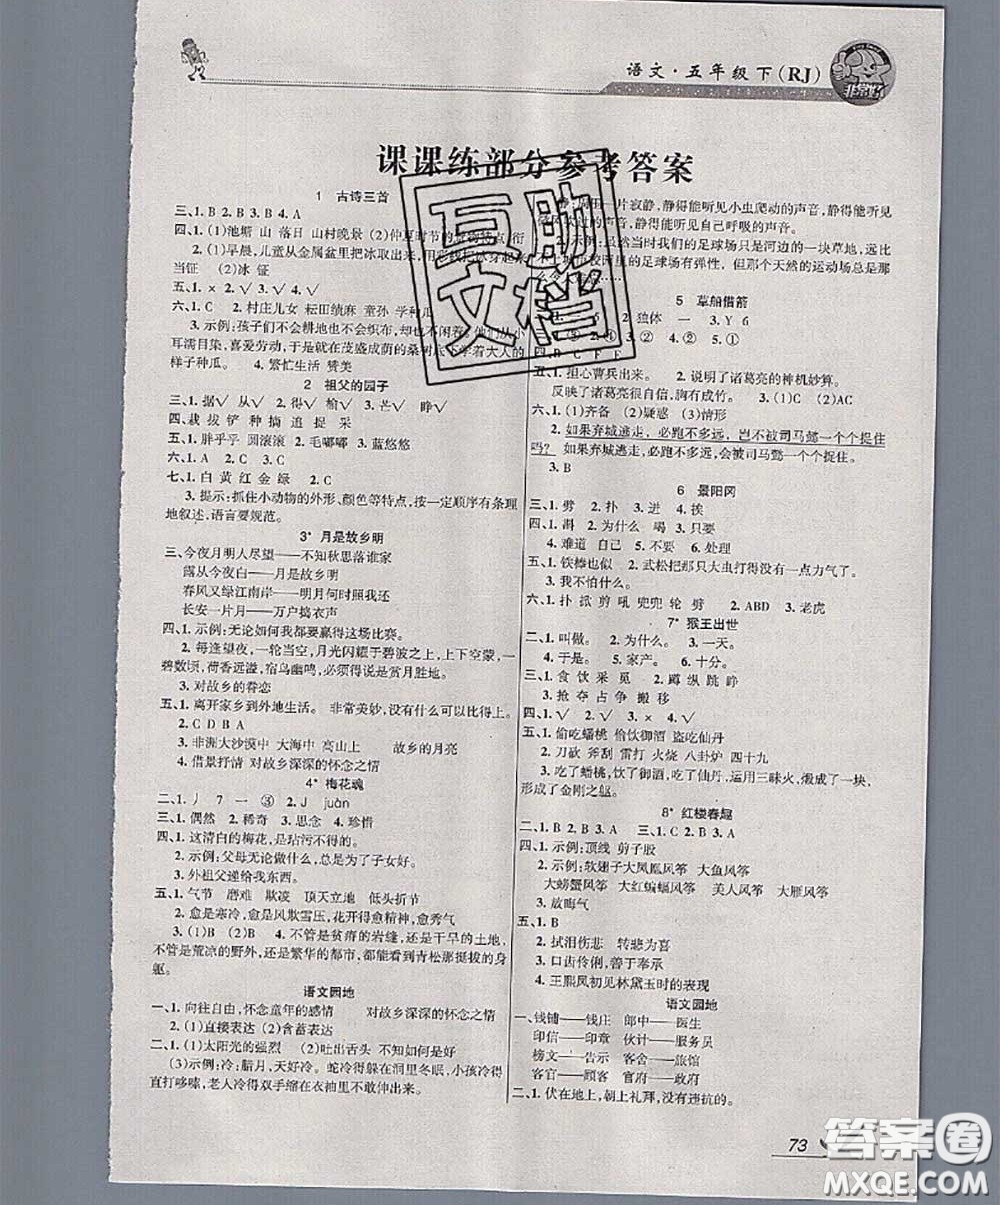 语文·五年级下(RJ)
非常好
课课练部分参考答案
1 古诗三首
三、1. B 2. B 3. B 4. A
四、1. (1)池塘 山 落日 山村晚景 (2)仲夏时节的 特点 衔
2. (1)早晨,儿童从金属盆里把冰取出来,用彩线把冰穿起来
当钲 (2)冰 钲
五、1. × 2. √ 3. √ 4. √
六、1. C 2. 村庄儿女 耘田绩麻 童孙 学种瓜
3. 示例:孩子们不会耕地也不会织布,却也不闲着。他们从小
耳濡目染,喜爱劳动,于是就在茂盛成荫的桑树底下学着大人的
样子种瓜。 4. 繁忙生活 赞美
2 祖父的园子
三、1. 据√ 从√ 2. 得√ 榆√ 3. 芒√ 睁√
四、栽 拔 铲 种 摘 追 捉 采
五、1. 胖乎乎 圆滚滚 2. 毛嘟嘟 3. 蓝悠悠
六、1. A 2. C 3. C
七、1. 白 黄 红 金 绿 2. C
3. 提示:抓住小动物的外形、颜色等特点,按一定顺序有条理
地叙述,语言要规范。
3* 月是故乡明
三、今夜月明人尽望——不知秋思落谁家
露从今夜白——月是故乡明
春风又绿江南岸——明月何时照我还
长安一片月——万户捣衣声
四、1. 示例:无论如何我都要赢得这场比赛。
2. 每逢望夜,一轮当空,月光闪耀于碧波之上,上下空蒙,一
碧数顷,荷香远溢,宿鸟幽鸣,必须得说是赏月胜地。
3. 对故乡的眷恋
五、1. 离开家乡到外地生活。 非常美妙,没有什么可以比得上。
2. C D B A
3. 非洲大沙漠中 大海中 高山上 故乡的月亮
4. 借景抒情 对故乡深深的怀念之情
4* 梅花魂
二、1. 丿 7 一 ③ 2. J juàn
三、1. 偶然 2. 稀奇 3. 思念 4. 珍惜
四、1. 这清白的梅花,是玷污不得的。
2. 示例:父母无论做什么,总是为了子女好。
3. 外祖父递给我东西。
五、1. 气节 磨难 欺凌 顶天立地 低头折节
2. 愈是寒冷,愈是风欺雪压,花开得愈精神,愈秀气
3. (1)B (2)B 4. 不管是贫瘠的岩缝,还是干旱的土地,
不管是荒凉的野外,还是繁华的都市,都能看到青松那挺拔的身
躯。
语文园地
一、1. 向往自由,怀念童年的感情 对故乡深深的怀念之情
2. (1)直接表达 (2)含蓄表达
二、1. (1)太阳光的强烈 (2)吐出舌头 不知如何是好
(3)示例:冷:腊月,天好冷。蛇冷得躲在洞里冬眠,小孩冷得
直打哆嗦,老人冷得双手缩在衣袖里不敢伸出来。
一片寂静,静得能听见小虫爬动的声音,静得能听见
过的声音,静得能听见自己呼吸的声音。
虽然当时我们的足球场只是河边的一块草地,远比
校园里的足球场有弹性,但那个天然的运动场总是那
么
5 草船借箭
2. 独体 一 3. Y 6
③ ② 4. ② 5. ①
四、B C F F
五、1. 担心曹兵出来。 2. 说明了诸葛亮的神机妙算。
反映了诸葛亮很自信,胸有成竹。 3. (1)C (2)AC
六、1. (1)齐备 (2)疑惑 (3)情形
2. 如果弃城逃走,必跑不多远,岂不被司马懿一个个捉住
吗? 如果弃城逃走,必跑不多远,会被司马懿一个个捉住。
3. B
6 景阳冈
三、1. 劈 2. 扑 3. 迸 4. 挨
四、1. 斟 2. 为什么 喝 3. 只要
4. 难道 自己 5. 不要 6. 处理
五、1. 铁棒也似 2. 武松把那只大虫打得没有一点力气了。
3. 我不怕什么。
六、1. 扑 掀 剪 吼 兜兜 轮 劈 2. ABD 3. 老虎
7* 猴王出世
二、1. 叫做。 2. 为什么。 3. 一天。
4. 于是。 5. 家产。 6. 十分。
三、1. 食 饮 采 觅 2. 蹲 纵 跳 睁
3. 抢 夺 占 争 搬 移
四、1. √ 2. √ 3. × 4. √
五、1. 偷吃蟠桃 偷饮御酒 盗吃仙丹
2. 刀砍 斧剁 雷打 火烧 八卦炉 四十九
3. 吃了蟠桃,饮了御酒,吃了仙丹,运用三昧火,煅成了一块,
形成了金刚之躯。
8* 红楼春趣
二、1. B 2. B 3. A 三、1. C 2. B 3. A
四、1. 示例:顶线 剪子股
2. 示例:软翅子大凤凰风筝 大鱼风筝
大螃蟹风筝 大红蝙蝠风筝 美人风筝 大雁风筝
3. 放晦气
五、1. B
2. 拭泪伤悲 转悲为喜
3. 口齿伶俐,善于奉承
4. 王熙凤初见林黛玉时的表现
语文园地
一、钱铺——钱庄 郎中——医生
印信——印章 伙计——服务员
榜文——告示 客舍——旅馆
客官——顾客 官府——政府
二、1. 伏在地上,朝上礼拜,没有违抗的。
73
豆助文档
答案圈
MXQE.COM